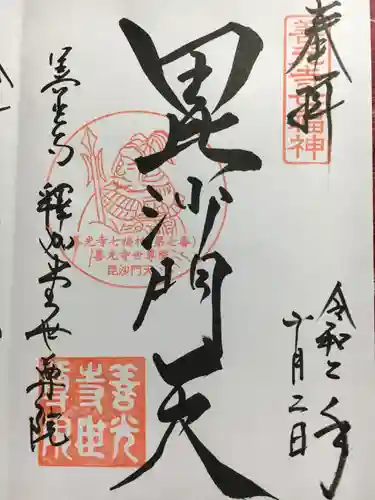 奉拝
善光寺七福神
令和二年
十月二日
毘沙門天
善光寺七福神(第七番)
(善光寺世尊院)
毘沙門天
善光寺 釋迦堂世尊院
善光
寺世
尊院